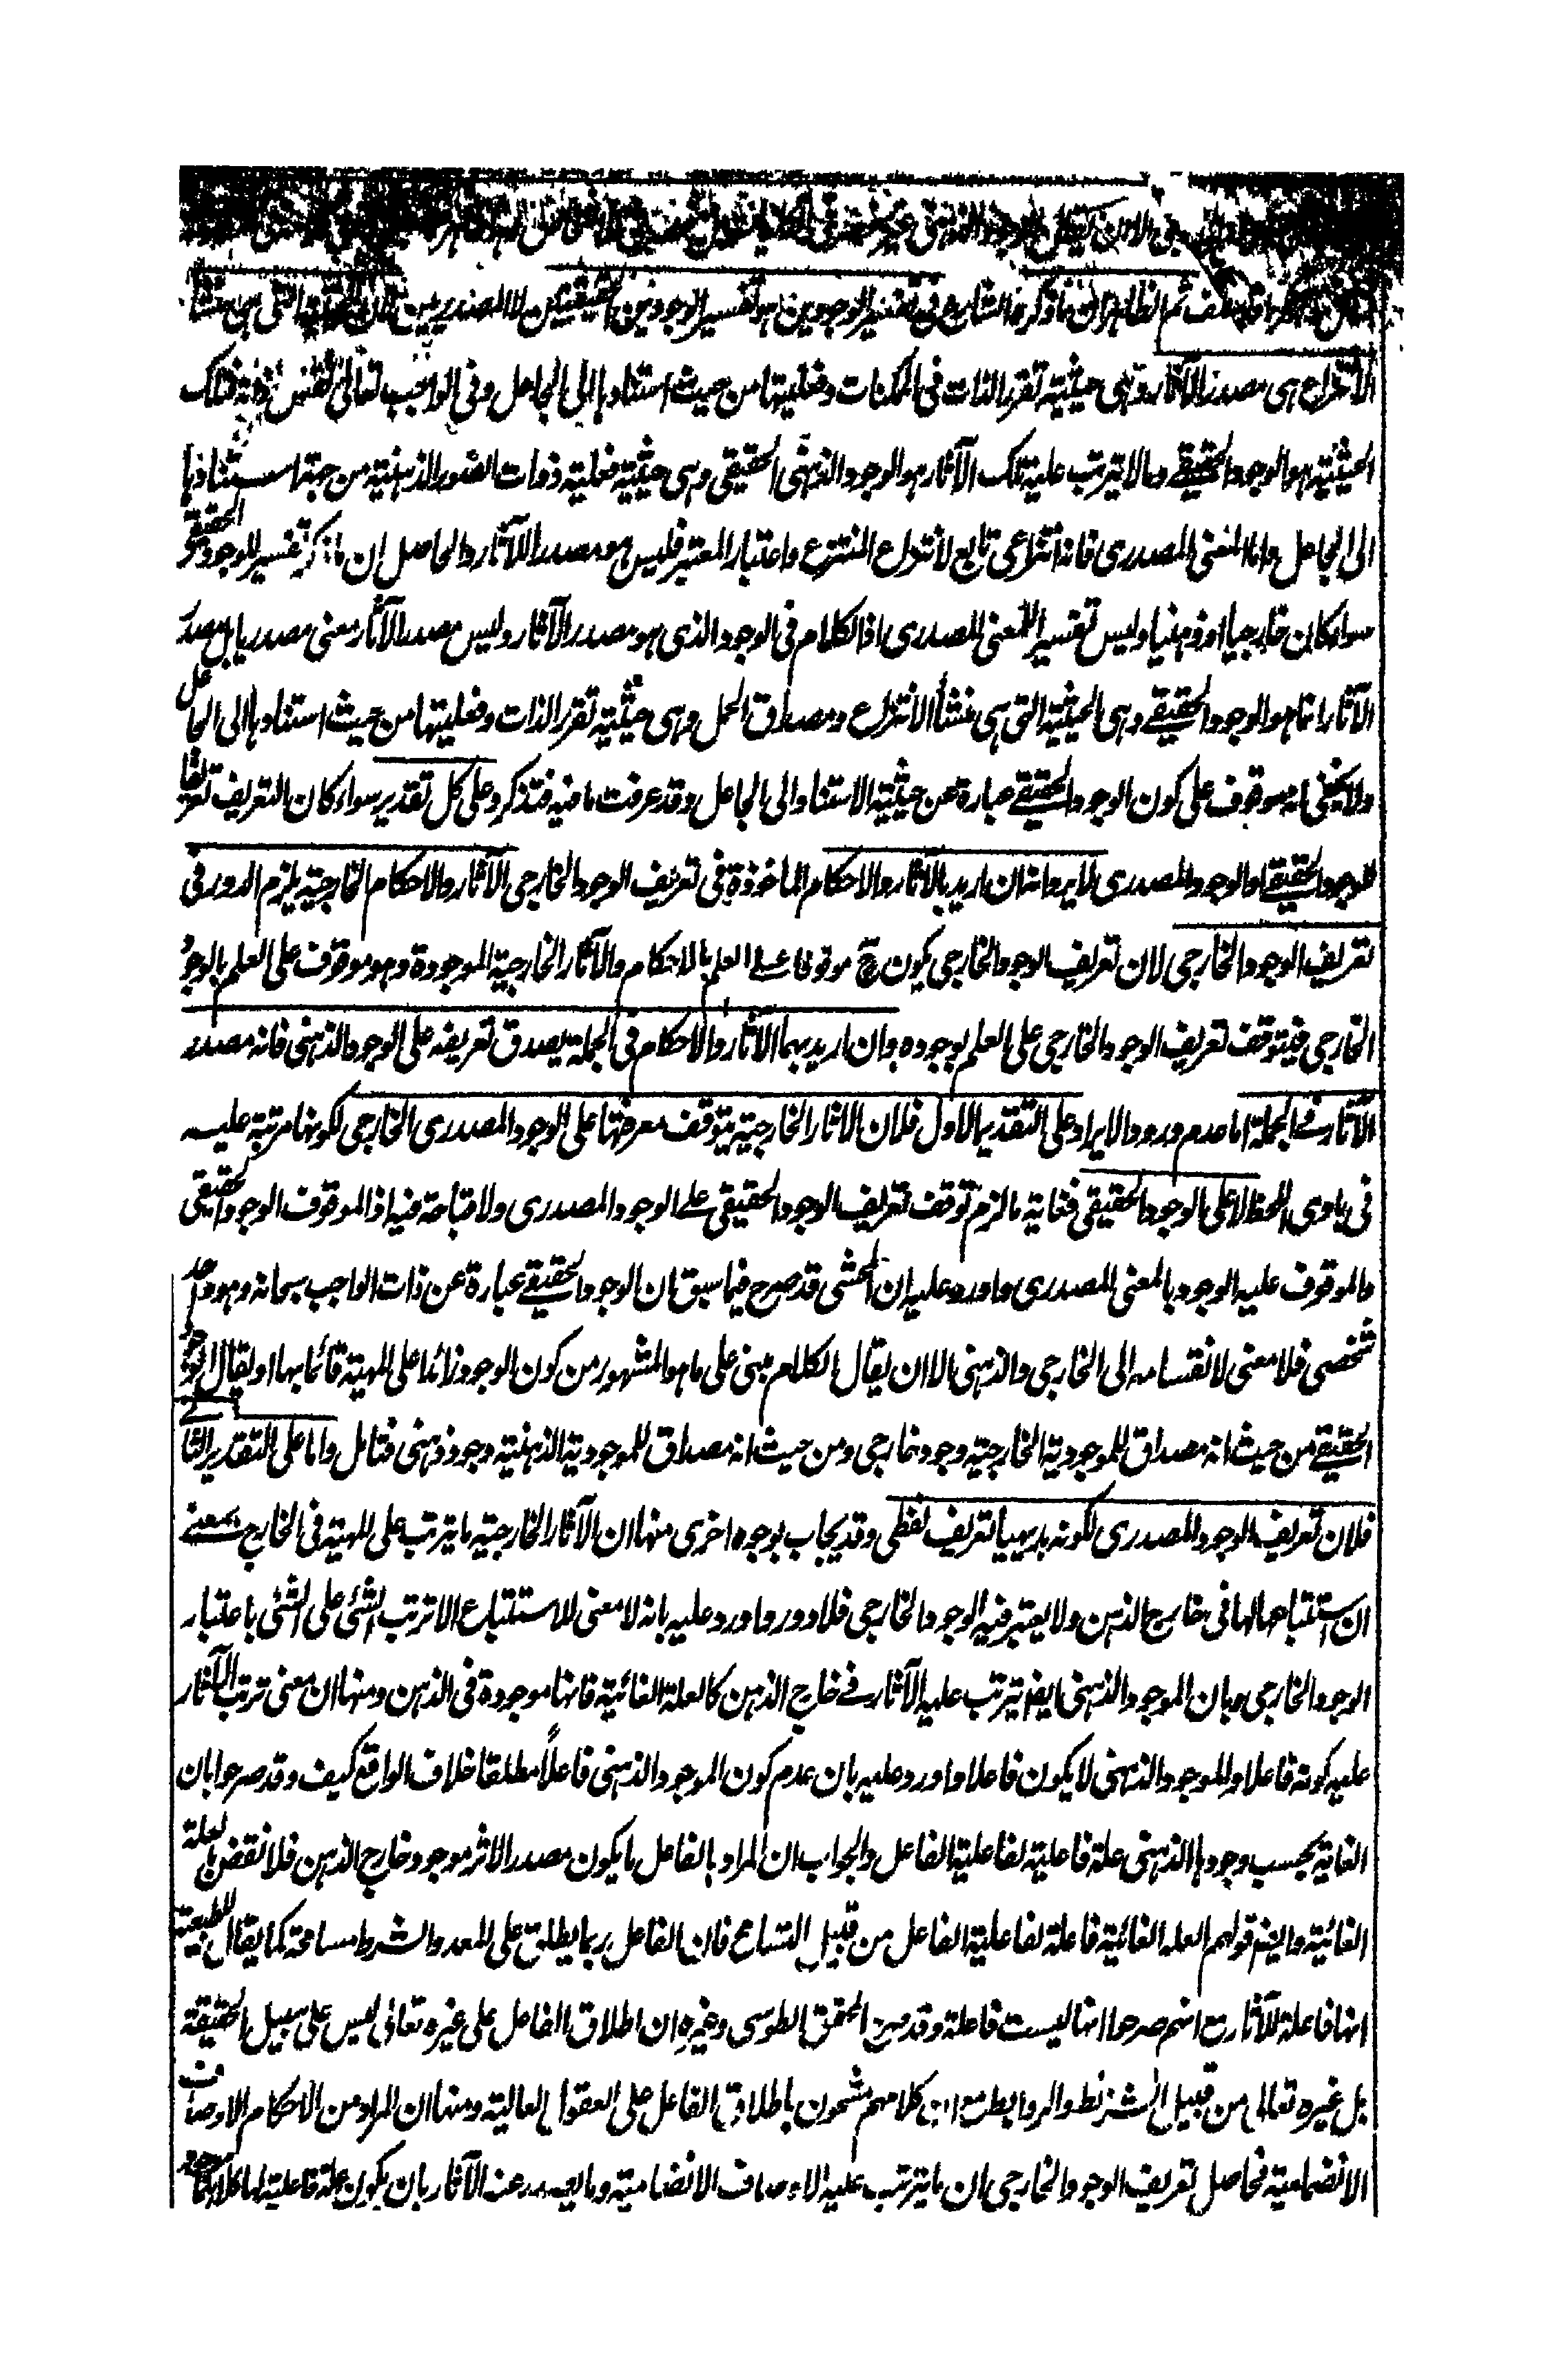 ثم الظاهر ان ما ذكره الشارح فى تفسير الوجودين هو تفسير الوجودين الحقيقيين لا المصدريين التى هى منشأ
الانتزاع هى مصدر الآثار وهى حيثية تقرر الذات فى الممكنات وفعليتها من حيث استنادها الى الجاعل وفى الواجب تعالى نفس ذاته فتلك
الحيثية هو الوجود الحقيقى وما لا يترتب عليه تلك الآثار هو الوجود الذهنى الحقيقى وهى حيثية فعلية ذوات الصور الذهنية من جهة استنادها
الى الجاعل واما المعنى المصدرى فانه انتزاعى تابع لانتزاع المنتزع واعتبار المعتبر فليس هو مصدر اللآثار والحاصل ان ما ذكر تفسير للوجود الحقيقى
سواء كان خارجيا او ذهنيا وليس تفسيرا للمعنى المصدرى اذ الكلام فى الوجود الذى هو مصدر الآثار وليس مصدر الآثار معنى مصدريا بل مصدر
الآثار انما هو الوجود الحقيقى وهى الحيثية التى هى منشأ الانتزاع ومصداق الحمل وهى حيثية تقرر الذات وفعليتها من حيث استنادها الى الجاعل
ولا يخفى انه موقوف على كون الوجود الحقيقى عبارة عن حيثية الاستناد الى الجاعل وقد عرفت ما فيه فتذكر وعلى كل تقدير سواء كان التعريف تعريفا
للوجود الحقيقى او الوجود المصدرى لا يرد انه ان اريد بالآثار والاحكام الماخوذة فى تعريف الوجود الخارجى الآثار والاحكام الخارجية يلزم الدور فى
تعريف الوجود الخارجى لان تعريف الوجود الخارجى يكون ح موقوفا على العلم بالاحكام والآثار الخارجية الموجودة وهو موقوف على العلم بالوجود
الخارجى فيتوقف تعريف الوجود الخارجى على العلم بوجوده وان اريد بهما الآثار والاحكام فى الجملة يصدق تعريفه على الوجود الذهنى فانه مصدر
الآثار فى الجملة اما عدم ورود الايراد على التقدير الاول فلان الاثار الخارجية يتوقف معرفتها على الوجود المصدرى الخارجى لكونها مرتبة عليه
فى بادى اللحظ لا على الوجود الحقيقى فغاية ما لزم توقف تعريف الوجود الحقيقى على الوجود المصدرى ولا قباحة فيه اذ الموقوف الوجود الحقيقى
والموقوف عليه الوجود بالمعنى المصدرى واورد عليه ان المحشى قد صرح فيما سبق ان الوجود الحقيقى عبارة عن ذات الواجب سبحانه وهو واحد
شخصى فلا معنى لانقسامه الى الخارجى والذهنى الا ان يقال الكلام مبنى على ما هو المشهور من كون الوجود زائدا على المهية قائما بها او يقال الوجود
الحقيقى من حيث انه مصداق للموجودية الخارجية وجود خارجى ومن حيث انه مصداق للموجودية الذهنية وجود ذهنى فتامل واما على التقدير الثانى
فلان تعريف الوجود المصدرى لكونه بديهيا تعريف لفظى وقد يجاب بوجوه اخرى منها ان الآثار الخارجية ما يترتب على المهية فى الخارج بمعنى
ان استتباعها لها فى خارج الذهن ولا يعتبر فيه الوجود الخارجى فلا دور واورد عليه بانه لا معنى للاستتباع الا ترتب الشئ على الشئ باعتبار
الوجود الخارجى وبان الموجود الذهنى ايضا يترتب عليه الآثار فى خارج الذهن كالعلة الغائية فانها موجودة فى الذهن ومنها ان معنى ترتب الآثار
عليه كونه فاعلا والموجود الذهنى لا يكون فاعلا واورد عليه بان عدم كون الموجود الذهنى فاعلاً مطلقا خلاف الواقع كيف وقد صرحوا بان
الغاية بحسب وجودها الذهنى علة فاعلية لفاعلية الفاعل والجواب ان المراد بالفاعل ما يكون مصدر الاثر موجود خارج الذهن فلا نقض بالعلة
الغائية وايضا قولهم العلة الغائية فاعلة لفاعلية الفاعل من قبيل التسامح فان الفاعل ربما يطلق على المعد والشرط مسامحة كما يقال للطبيعة
انها فاعلة للآثار مع انهم صرحوا انها ليست فاعلة وقد صرح المحقق الطوسى وغيره ان اطلاق الفاعل على غيره تعالى ليس على سبيل الحقيقة
بل غيره تعالى من قبيل الشرائط والروابط مع ان كلامهم مشحون باطلاق الفاعل على العقول العالية ومنها ان المراد من الاحكام الاوصاف
الانضمامية فحاصل تعريف الوجود الخارجى ان ما يترتب عليه الاوصاف الانضمامية وما يصدر عنه الآثار بان يكون علة فاعلية لها